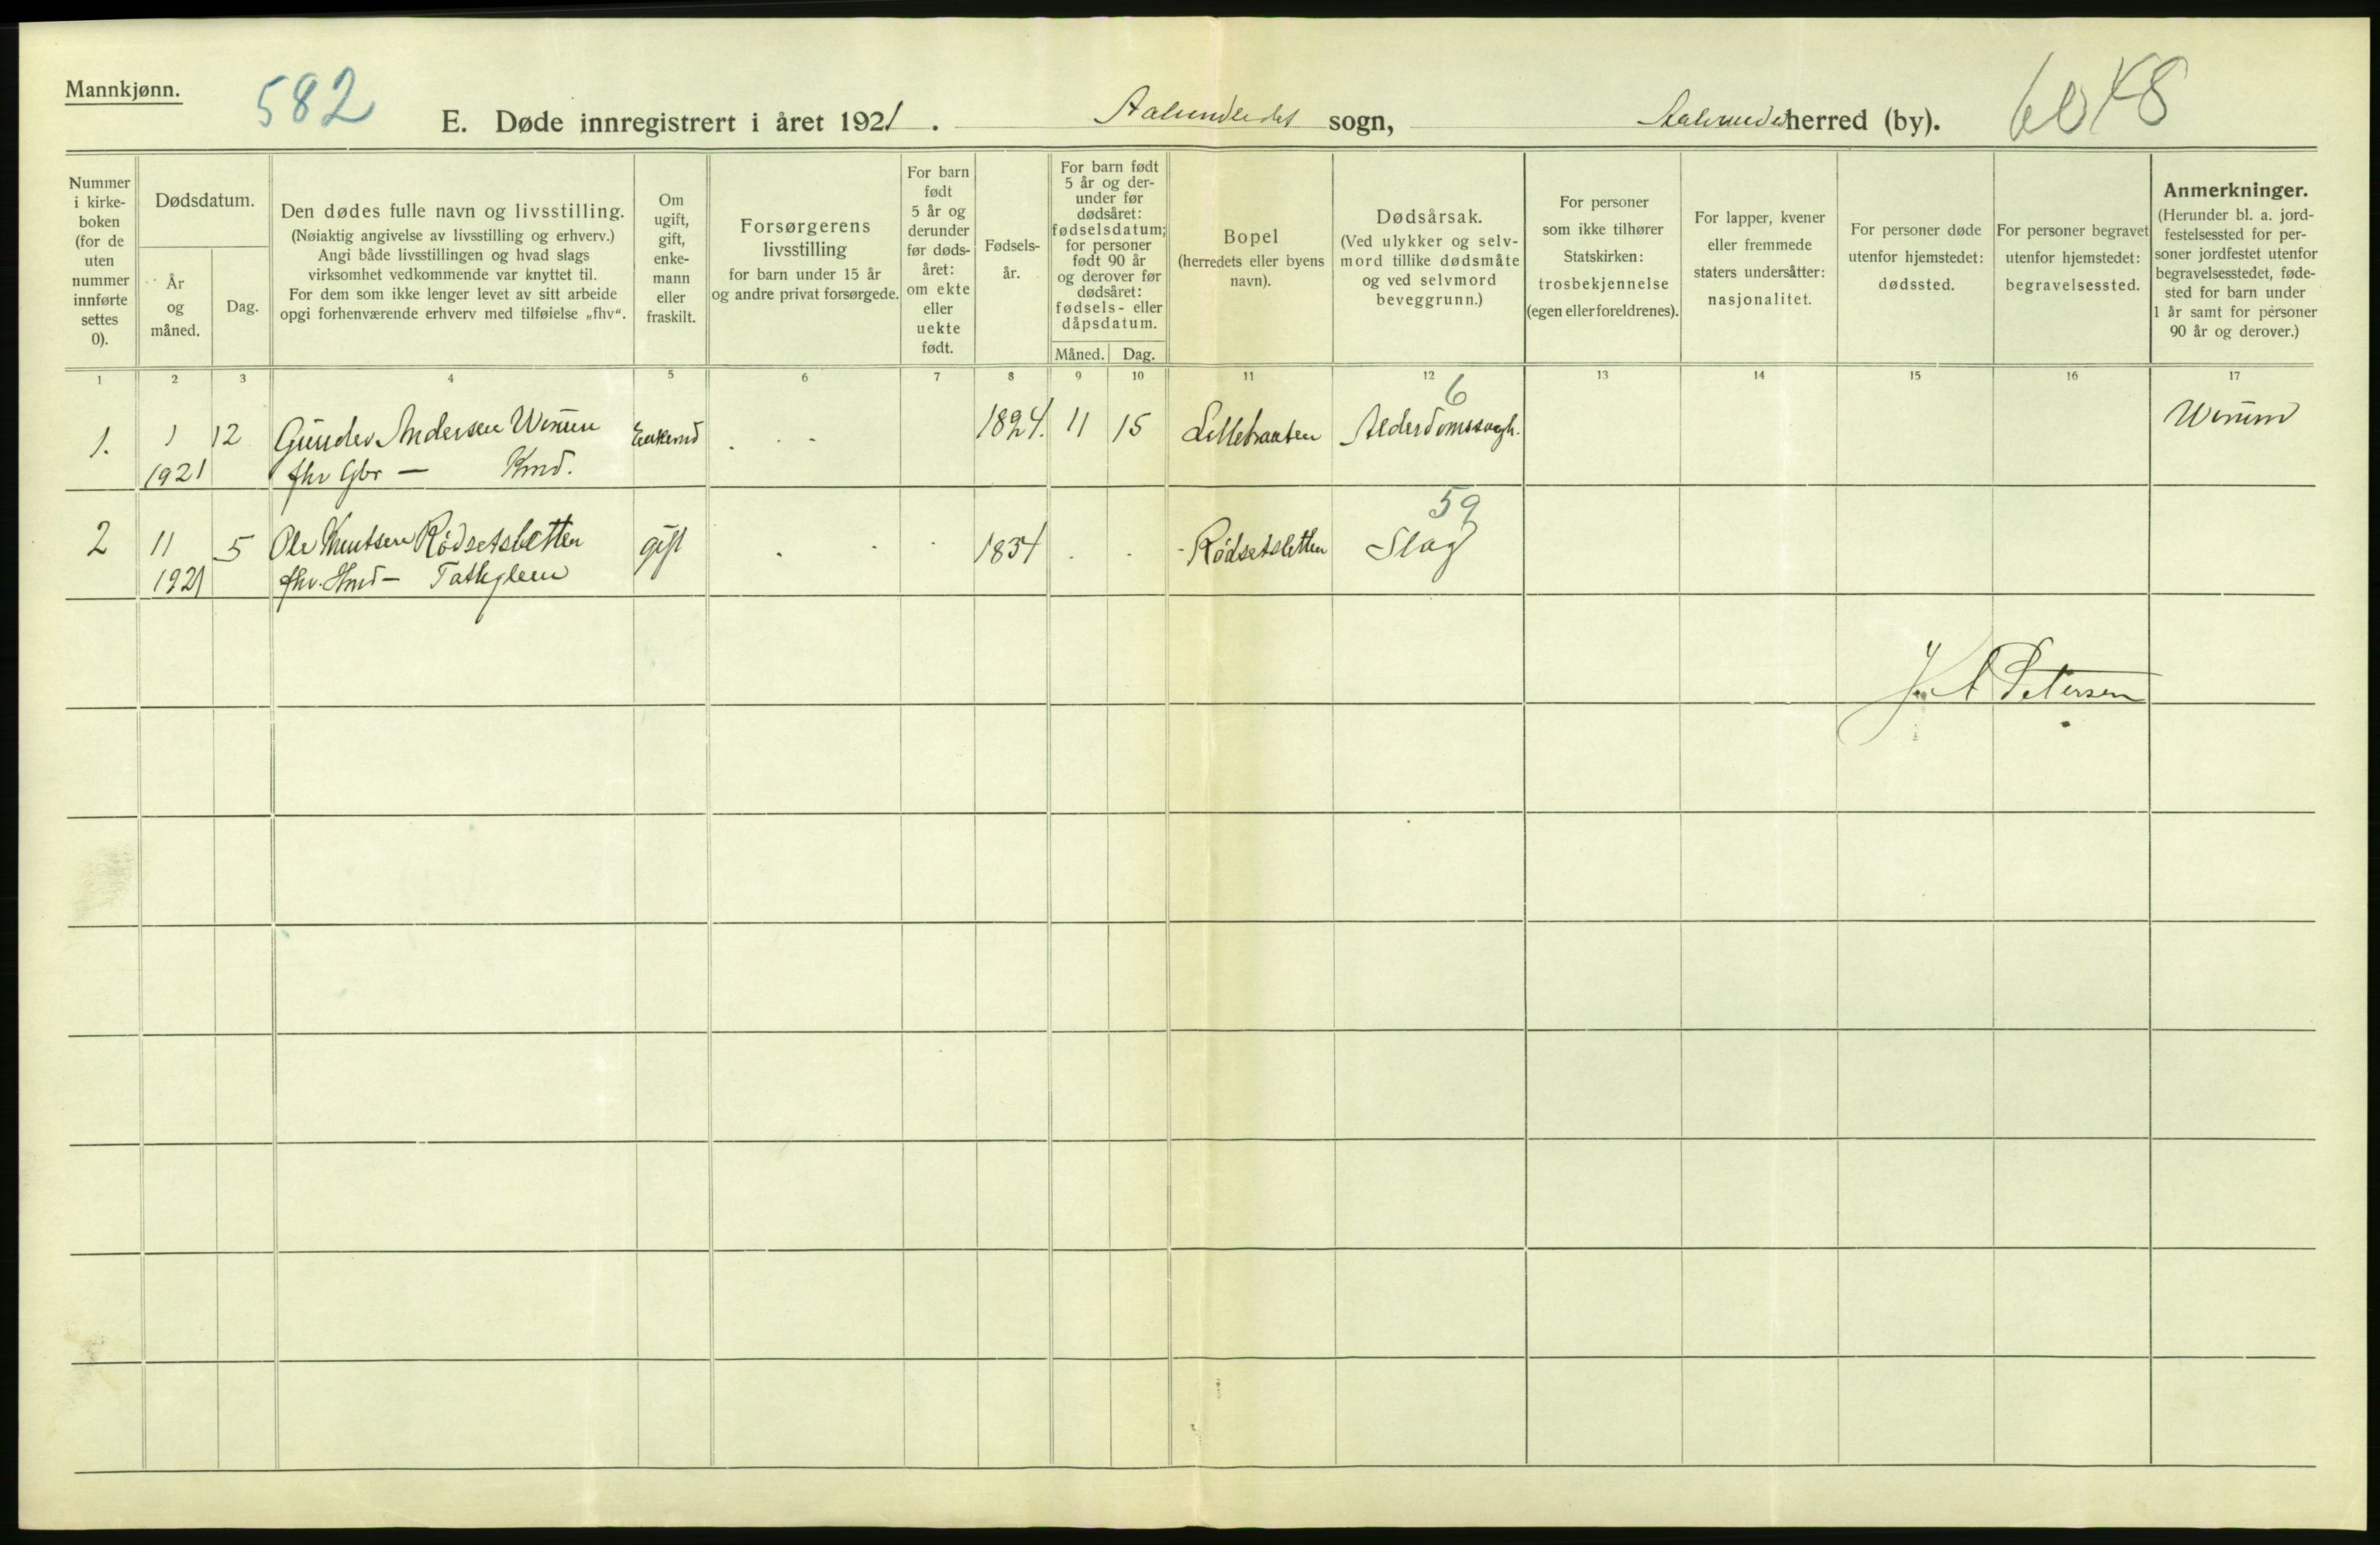 Mannkjønn.
582
E. Døde innregistrert i året 1921. Aalundeidet sogn, herred (by).
6048
Nummer i kirke-boken (for de uten nummer innførte settes 0).
Dødsdatum.
År og måned.
Dag.
Den dødes fulle navn og livsstilling.
(Nøiaktig angivelse av livsstilling og erhverv.)
Angi både livsstillingen og hvad slags
virksomhet vedkommende var knyttet til.
For dem som ikke lenger levet av sitt arbeide
opgi forhenværende erhverv med tilføielse „fhv“.
Om ugift, gift, enke-mann eller fraskilt.
Forsørgerens
livsstilling
for barn under 15 år
og andre privat forsørgede.
For barn født 5 år og derunder før døds-året: om ekte eller uekte født.
Fødsels-år.
For barn født 5 år og der-under før dødsåret: fødselsdatum; for personer født 90 år og derover før dødsåret: fødsels- eller dåpsdatum.
Måned. Dag.
Bopel
(herredets eller byens navn).
Dødsårsak.
(Ved ulykker og selv-mord tillike dødsmåte og ved selvmord beveggrunn.)
For personer som ikke tilhører Statskirken: trosbekjennelse (egen eller foreldrenes).
For lapper, kvener eller fremmede staters undersåtter: nasjonalitet.
For personer døde utenfor hjemstedet: dødssted.
For personer begravet utenfor hjemstedet: begravelsessted.
Anmerkninger.
(Herunder bl. a. jord-festelsessted for per-soner jordfestet utenfor begravelsesstedet, føde-sted for barn under 1 år samt for personer 90 år og derover.)
1 2 3 4 5 6 7 8 9 10 11 12 13 14 15 16 17
6
1. 1 12 Gunder Andersen Enkemd 1824. 11 15 Lillebraaten Alderdomssvagh.
1921 fhv Gbr —
59
2 11 5 Ole Knutsen Rödsetsletten gift 1834 Rödsetsletten Slag
1921 fhv. Hmd —
Petersen